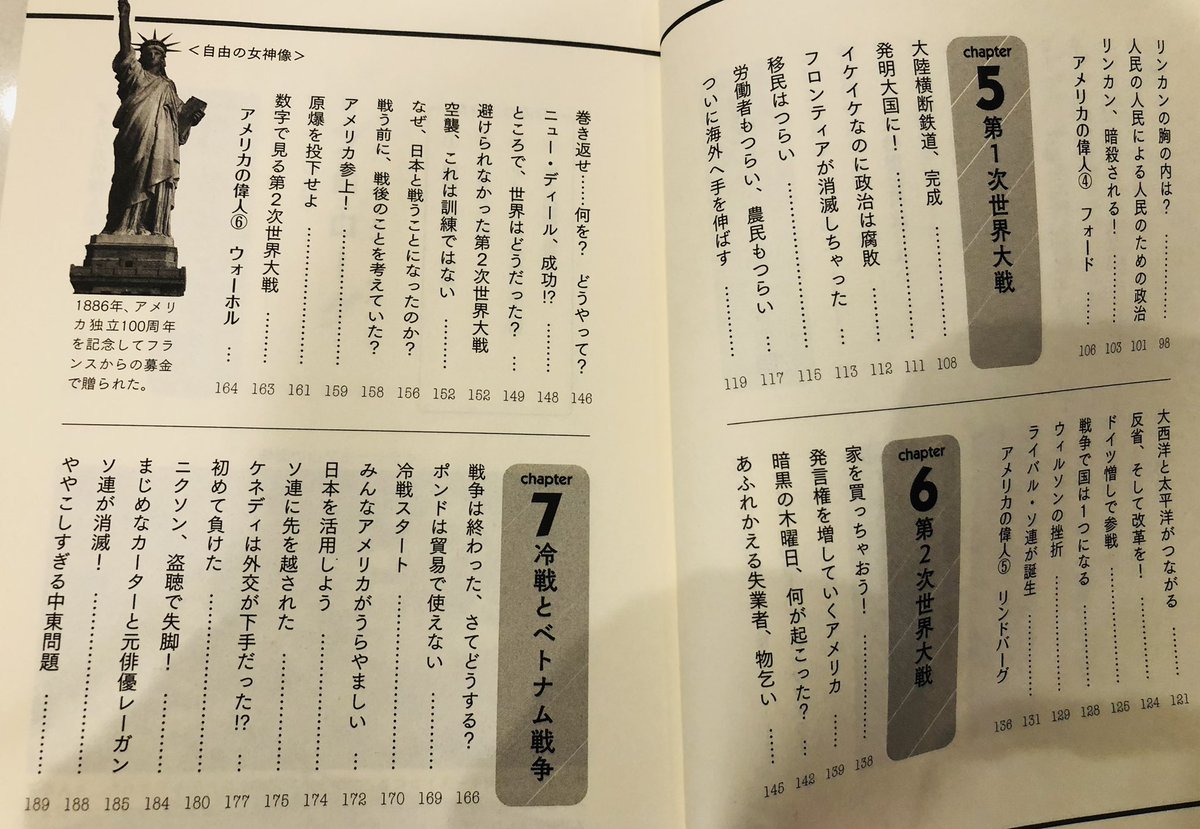 リンカンの胸の内は？ ……… 98
人民の人民による人民のための政治 101
リンカン、暗殺される！ …… 103
アメリカの偉人④ フォード … 106
chapter
5 第1次世界大戦
大陸横断鉄道、完成 ……… 108
発明大国に！ ……… 111
イケイケなのに政治は腐敗 …… 112
フロンティアが消滅しちゃった …… 113
移民はつらい ……… 115
労働者もつらい、農民もつらい …… 117
ついに海外へ手を伸ばす …… 119
大西洋と太平洋がつながる …… 121
反省、そして改革を！ ……… 124
ドイツ憎しで参戦 ……… 125
戦争で国は1つになる ……… 128
ウィルソンの挫折 ……… 129
ライバル・ソ連が誕生 ……… 131
アメリカの偉人⑤ リンドバーグ … 136
chapter
6 第2次世界大戦
家を買っちゃおう！ ……… 138
発言権を増していくアメリカ …… 139
暗黒の木曜日、何が起こった？ … 142
あふれかえる失業者、物乞い …… 145
＜自由の女神像＞
1886年、アメリ
カ独立100周年
を記念してフラ
ンスからの募金
で贈られた。
巻き返せ……何を？ どうやって？ 146
ニュー・ディール、成功!? …… 148
ところで、世界はどうだった？ … 149
避けられなかった第2次世界大戦 152
空襲、これは訓練ではない …… 152
なぜ、日本と戦うことになったのか？ 156
戦う前に、戦後のことを考えていた？ 158
アメリカ参上！ ……… 159
原爆を投下せよ ……… 161
数字で見る第2次世界大戦 …… 163
アメリカの偉人⑥ ウォーホル … 164
chapter
7 冷戦とベトナム戦争
戦争は終わった、さてどうする？ … 166
ポンドは貿易で使えない …… 169
冷戦スタート ……… 170
みんなアメリカがうらやましい …… 172
日本を活用しよう ……… 174
ソ連に先を越された ……… 175
ケネディは外交が下手だった!? … 177
初めて負けた ……… 180
ニクソン、盗聴で失脚！ ……… 184
まじめなカーターと元俳優レーガン 185
ソ連が消滅！ ……… 188
ややこしすぎる中東問題 …… 189